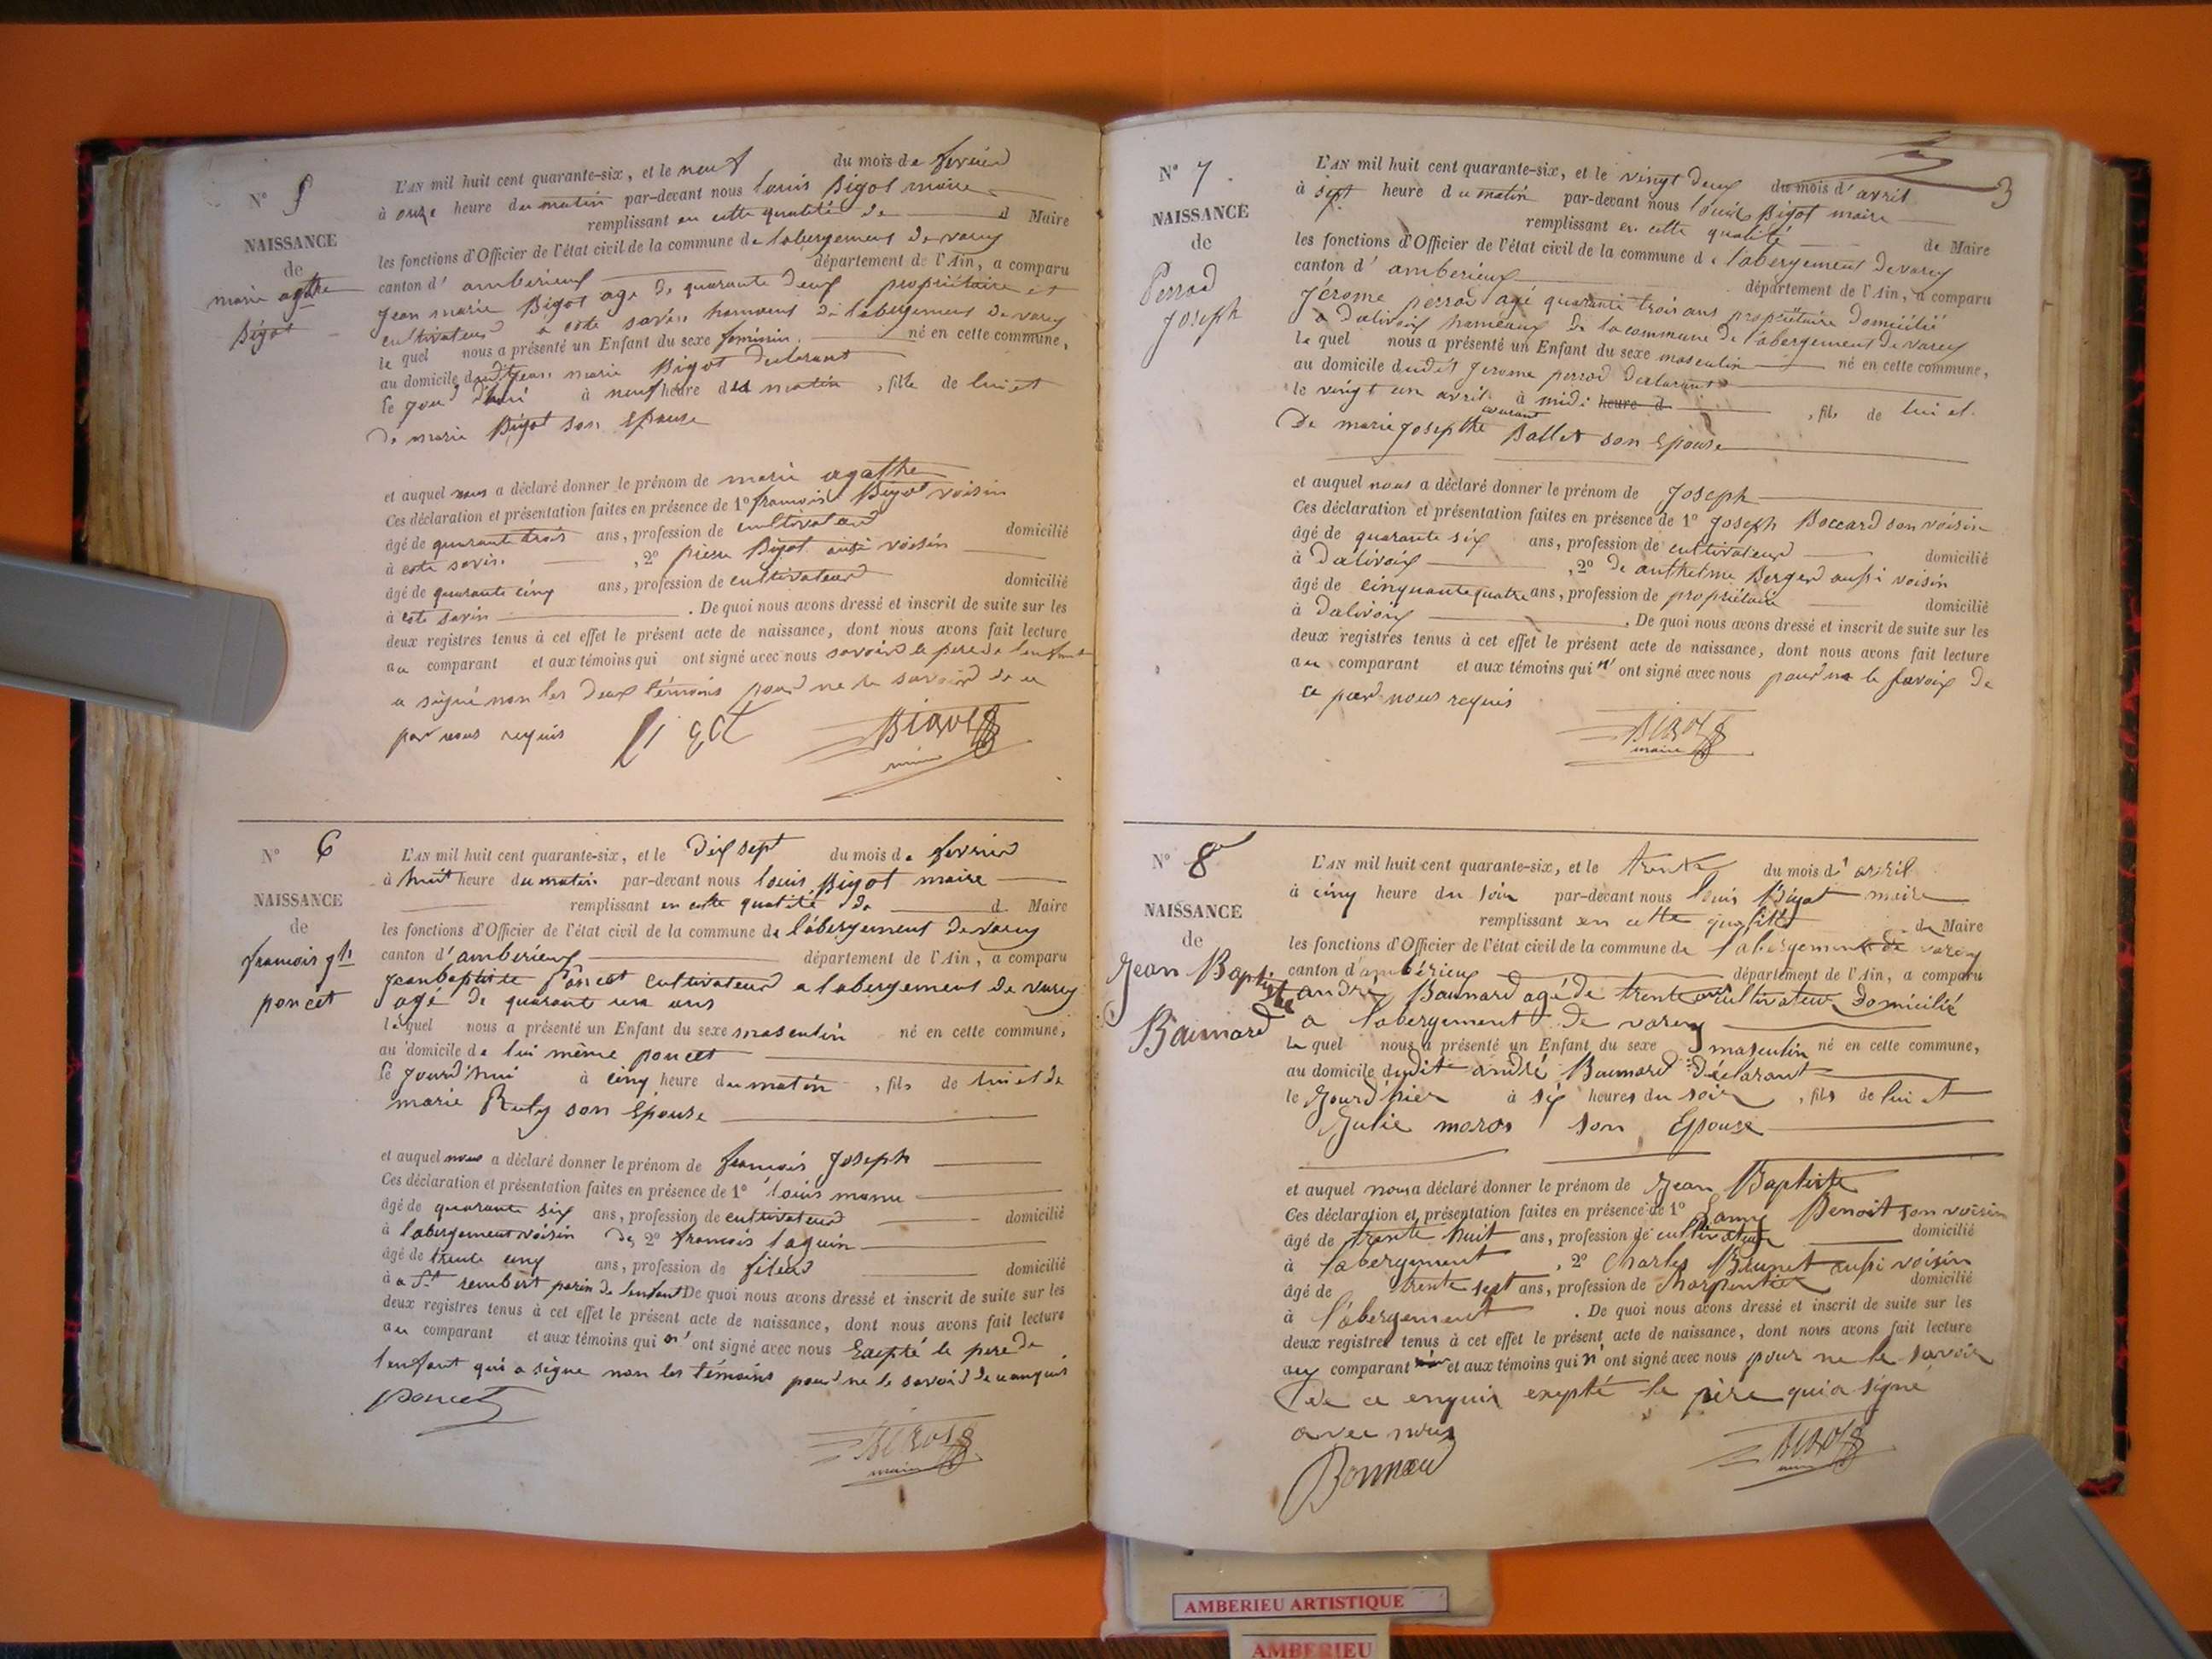 N° 5
NAISSANCE
de
marie agathe
Bigot
L'AN mil huit cent quarante-six, et le neuf du mois de fevrier
à onze heure du matin par-devant nous louis Bigot maire
remplissant en cette qualité de d Maire
les fonctions d'Officier de l'état civil de la commune de labergement de varey
canton d'amberieux département de l'Ain, a comparu
Jean marie Bigot agé de quarante deux propriétaire et
cultivateur a cote savin hameau de labergement de varey
le quel nous a présenté un Enfant du sexe feminin né en cette commune,
au domicile dudit Jean marie Bigot declarant
le jourd'hui à neuf heure du matin, fille de lui et
De marie Bigot son Epouse
et auquel nous a déclaré donner le prénom de marie agathe
Ces déclaration et présentation faites en présence de 1° francois Bigot voisin
âgé de quarante trois ans, profession de cultivateur domicilié
à cote savin, 2° pierre Bigot aussi voisin
âgé de quarante cinq ans, profession de cultivateur domicilié
à cote savin. De quoi nous avons dressé et inscrit de suite sur les
deux registres tenus à cet effet le présent acte de naissance, dont nous avons fait lecture
au comparant et aux témoins qui ont signé avec nous savoir le pere de lenfant
a signé non les deux témoins pour ne le savoir de ce
par nous requis
Bigot
maire
N° 6
NAISSANCE
de
francois jh
poncet
L'AN mil huit cent quarante-six, et le dix sept du mois de fevrier
à huit heure du matin par-devant nous louis Bigot maire
remplissant en cette qualité de d Maire
les fonctions d'Officier de l'état civil de la commune de l'abergement de varey
canton d'amberieux département de l'Ain, a comparu
Jean baptiste Poncet cultivateur a labergement de varey
agé de quarante un ans
lequel nous a présenté un Enfant du sexe masculin né en cette commune,
au domicile de lui même poncet
le jourd'hui à cinq heure du matin, fils de lui et de
marie Ruty son Epouse
et auquel nous a déclaré donner le prénom de francois Joseph
Ces déclaration et présentation faites en présence de 1° louis
âgé de quarante six ans, profession de cultivateur domicilié
à labergement voisin de 2° francois laguin
âgé de trente cinq ans, profession de fileur domicilié
à a St rembert parin de lenfant De quoi nous avons dressé et inscrit de suite sur les
deux registres tenus à cet effet le présent acte de naissance, dont nous avons fait lecture
au comparant et aux témoins qui n'ont signé avec nous Excepté le pere de
lenfant qui a signe non les témoins pour ne le savoir de ce anquis
Poncet
Bigot
maire
3
N° 7.
NAISSANCE
de
Perrod
Joseph
L'AN mil huit cent quarante-six, et le vingt deux du mois d'avril
à sept heure du matin par-devant nous louis Bigot maire
remplissant en cette qualité de Maire
les fonctions d'Officier de l'état civil de la commune de l'abergement de varey
canton d'amberieux département de l'Ain, a comparu
Jérome perrod agé quarante trois ans propriétaire domicilié
a Dalivoix hameaux de la commune de l'abergement de varey
le quel nous a présenté un Enfant du sexe masculin né en cette commune,
au domicile dudit Jerome perrod declarant
le vingt un avril à midi heure d, fils de lui et
courant
De marie Josepthe Ballet son Epouse
et auquel nous a déclaré donner le prénom de Joseph
Ces déclaration et présentation faites en présence de 1° Joseph Boccard son voisin
âgé de quarante six ans, profession de cultivateur domicilié
à Dalivoix, 2° de anthelme Berger aussi voisin
âgé de cinquante quatre ans, profession de propriétaire domicilié
à Dalivoix. De quoi nous avons dressé et inscrit de suite sur les
deux registres tenus à cet effet le présent acte de naissance, dont nous avons fait lecture
au comparant et aux témoins qui n'ont signé avec nous pour ne le savoir de
ce par nous requis
Bigot
maire
N° 8
NAISSANCE
de
Jean Baptiste
Baunard
L'AN mil huit cent quarante-six, et le trente du mois d'avril
à cinq heure du soir par-devant nous louis Bigot maire
remplissant en cette qualité de Maire
les fonctions d'Officier de l'état civil de la commune de labergement de varey
canton d'amberieux département de l'Ain, a comparu
andré Baunard agé de trente cultivateur Domicilié
a labergement de varey
le quel nous a présenté un Enfant du sexe masculin né en cette commune,
au domicile dudit andré Baunard déclarant
le Jourd'hier à six heures du soir, fils de lui et
Julie moros son Epouse
et auquel nous a déclaré donner le prénom de Jean Baptiste
Ces déclaration et présentation faites en présence de 1° Benoit son voisin
âgé de trente huit ans, profession de cultivateur domicilié
à labergement, 2° Charles Brunet aussi voisin
âgé de trente sept ans, profession de Charpentier domicilié
à l'abergement. De quoi nous avons dressé et inscrit de suite sur les
deux registres tenus à cet effet le présent acte de naissance, dont nous avons fait lecture
au comparant et aux témoins qui n'ont signé avec nous pour ne le savoir
de ce enquis excepté le père qui a signé
avec nous
Bonnard
Bigot
maire
AMBERIEU ARTISTIQUE
AMBERIEU